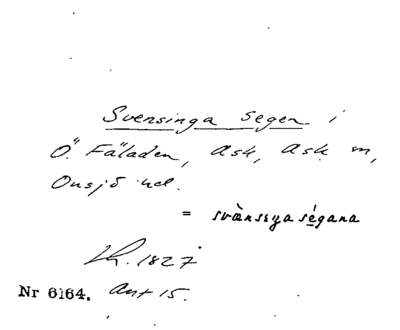 Svensinga segen i
Ö. Fäladen, Ask, Ask sn,
Onsjö hd.
= svänsιyaségana
Lh. 1827
Nr 6164. Ant 15.